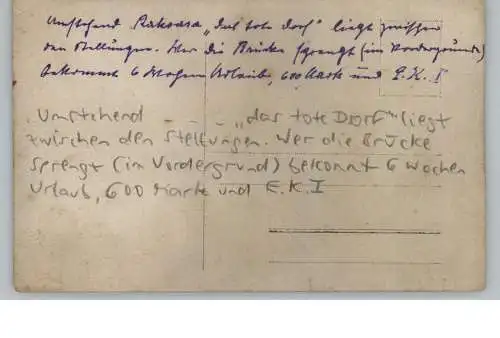 Umstehend Rakowa „das tote Dorf" liegt zwischen
den Stellungen. Wer die Brücke sprengt (im Vordergrunde)
bekommt 6 Wochen Urlaub, 600 Mark und E.K. I
Umstehend _ _ _ _ „das tote Dorf" liegt
zwischen den Stellungen. Wer die Brücke
sprengt (im Vordergrund) bekommt 6 Wochen
Urlaub, 600 Marke und E.K.I